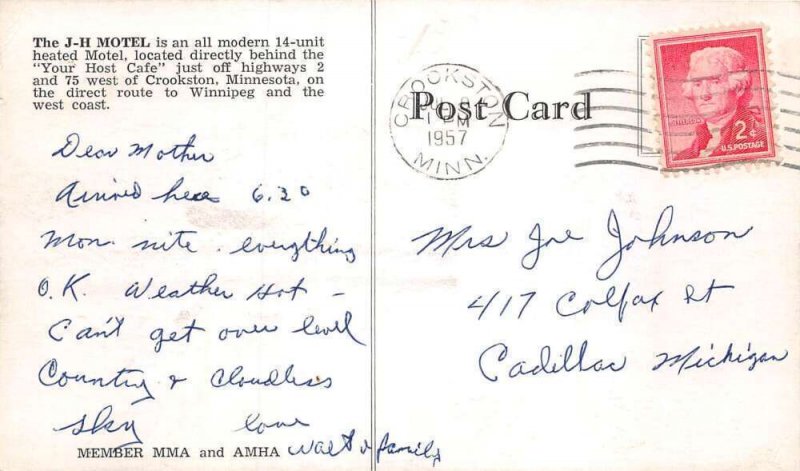 The J-H MOTEL is an all modern 14-unit
heated Motel, located directly behind the
"Your Host Cafe" just off highways 2
and 75 west of Crookston, Minnesota, on
the direct route to Winnipeg and the
west coast.
Dear Mother
Arrived here 6.20
Mon. nite. everything
O.K. Weather Hot -
Can't get over level
Country & Cloudless
sky love
Walt & family
MEMBER MMA and AMHA
Post Card
CROOKSTON
1957
MINN.
2¢
U.S. POSTAGE
Mrs Joe Johnson
417 Colfax St
Cadillac Michigan